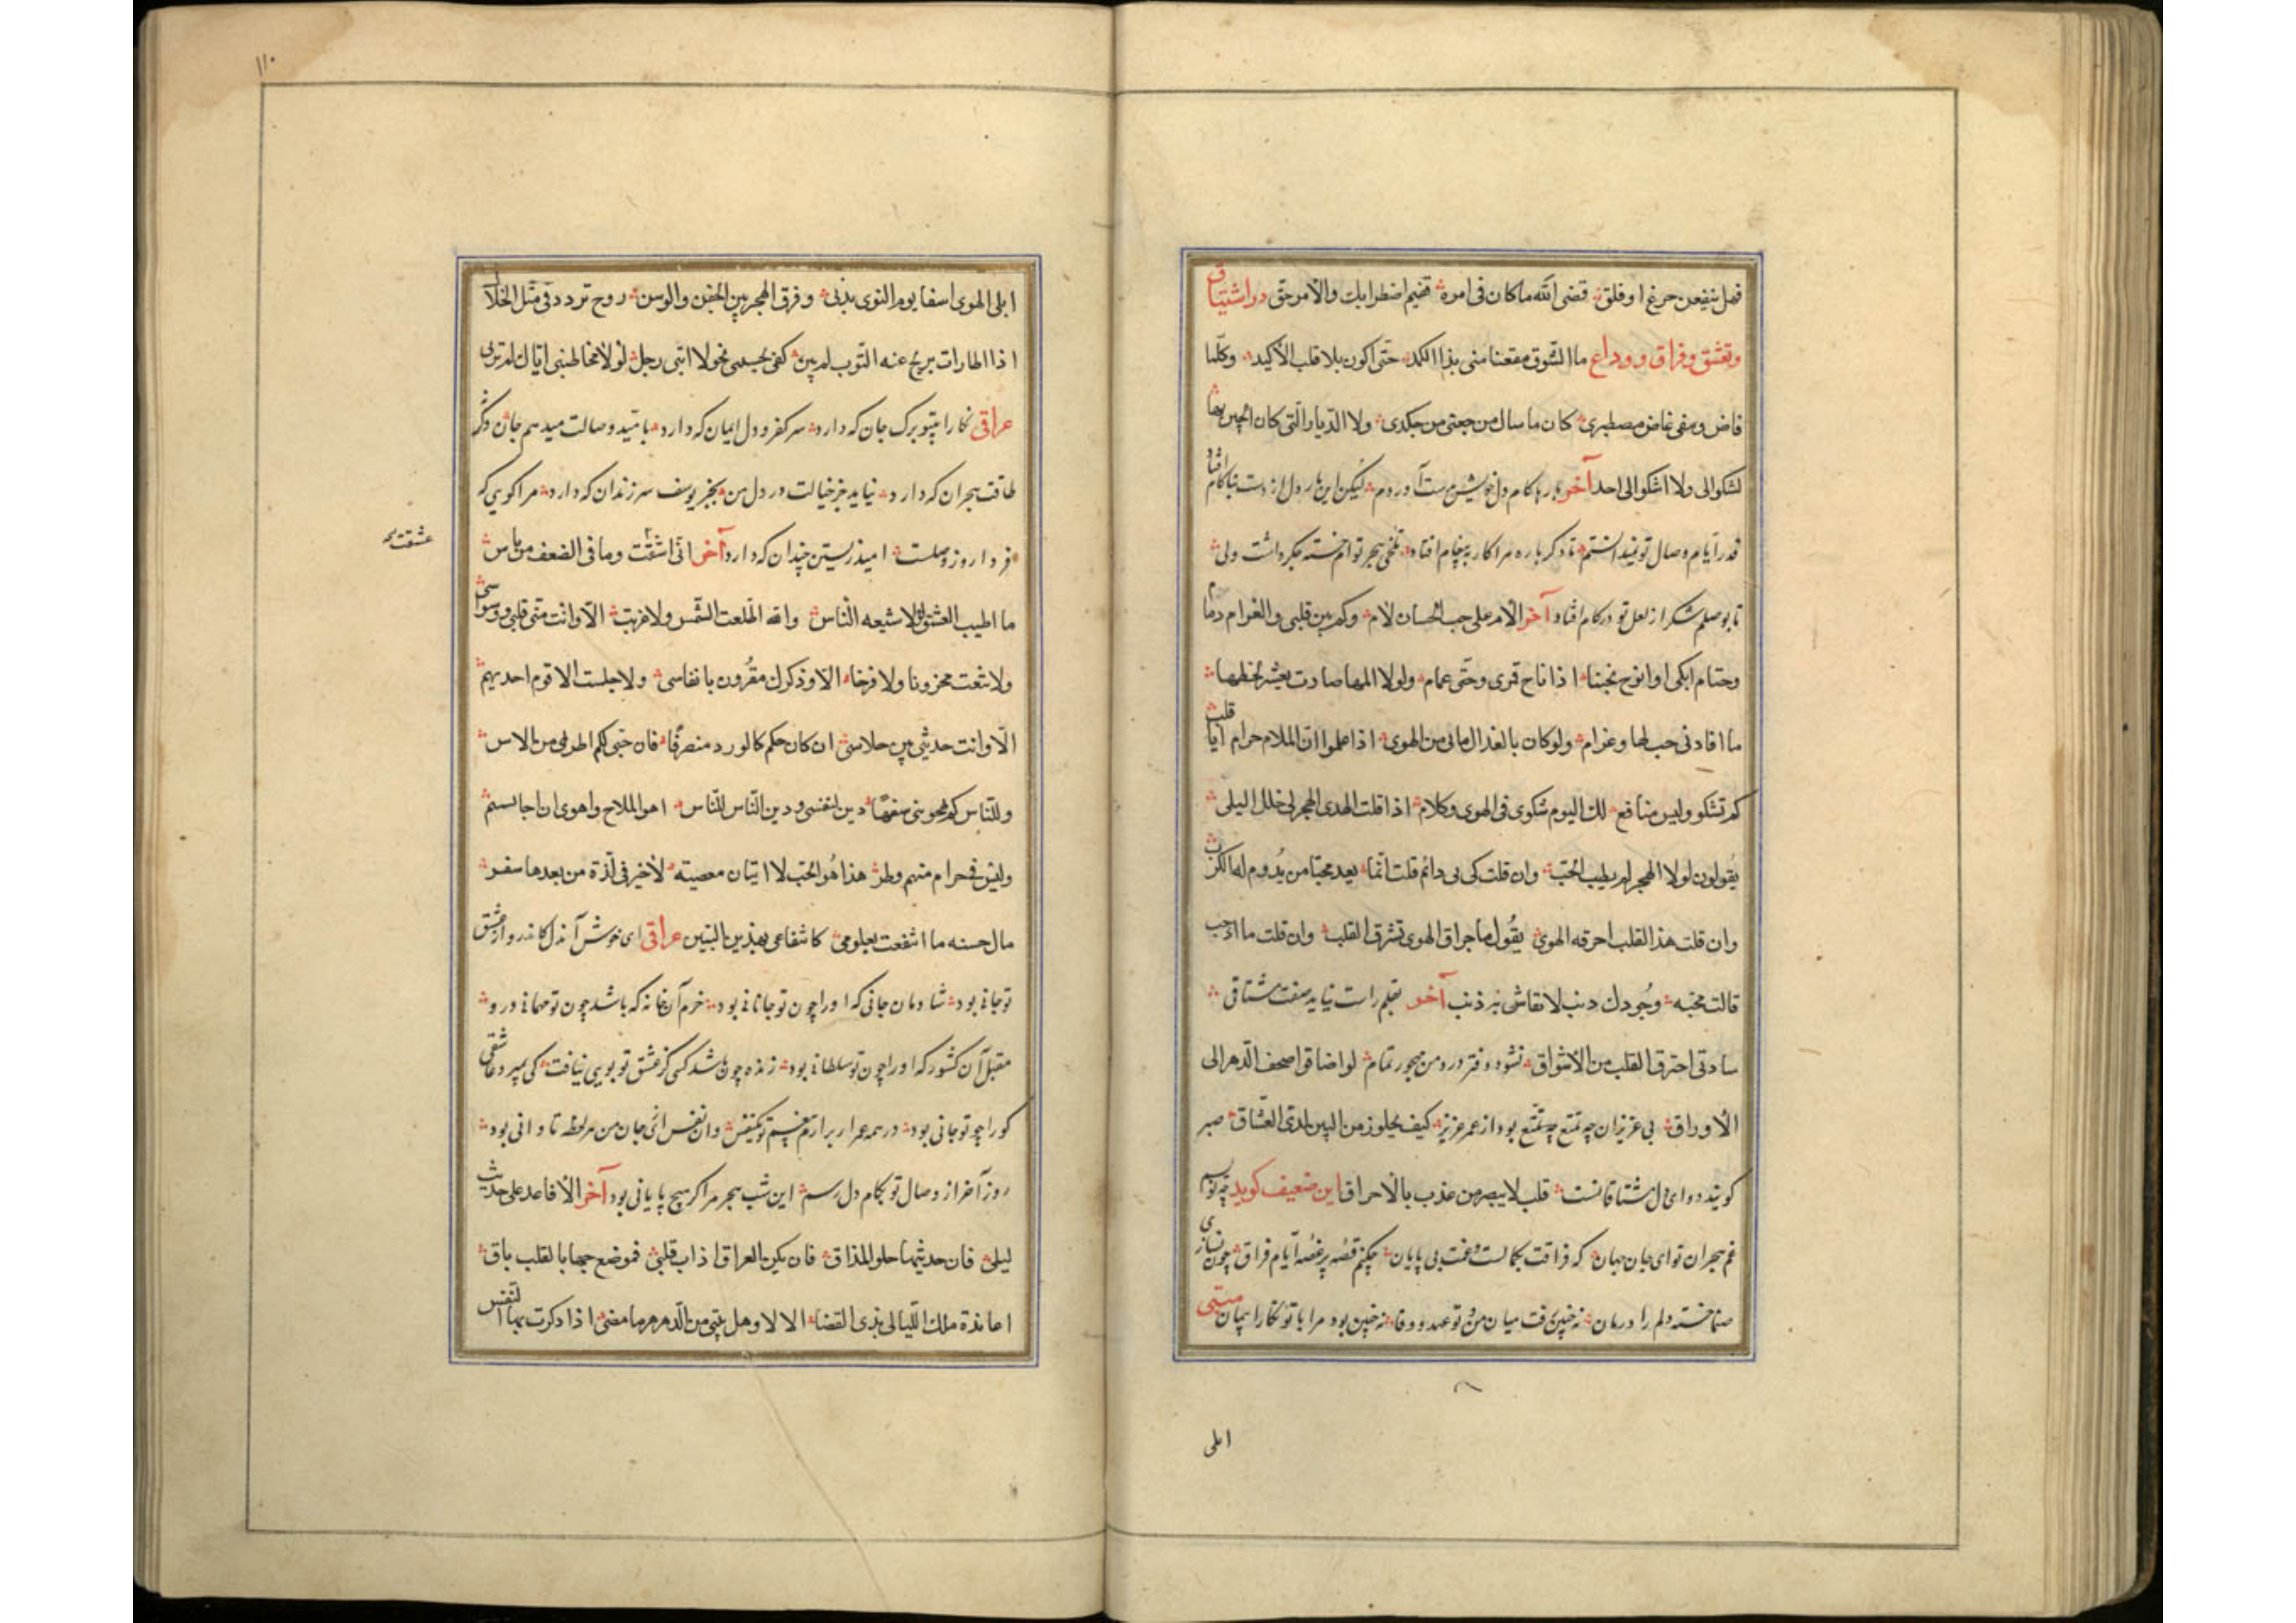 فهل ينفعن جزعا وقلق قضى الله ما كان فى امره ففيم اضطرابك والامر حق در اشتياق
وتعشق و فراق و وداع ما الشوق مقتعنا منى بذا الكمد حتى اكون بلا قلب الاكبد وكلما
فاض دمعى غاض مصطبرى كان ما سال من جفتى من جلدى ولا الديار التى كان الحبيب بها
تشكو الى ولا اشكو الى احد آخر بارها كام دل خويش بدست آوردم ليكن اين بار دل از دست بناكام افتاد
قدر ايام وصال تو ندانستم تا دكر باره مرا كار به پيغام افتاد تلخى هجر توام خسته جكر داشت ولى
تا بوصلم شكر از لعل تو در كام افتاد آخر الام على حب الحسان لام وكم بين قلبى والغرام دما
وحتام ابكى او انوح نحبنا اذا ناح قمرى وحتى عمام ولولا المها صادت بعيش لحظها
ما اقادنى حب لها وغرام ولو كان بالعذال مابى من الهوى اذا علموا ان الملام حرام ايا قلب
كم تشكو وليس منافع لك اليوم شكوى فى الهوى وكلام اذا قلت اهدى الهجر لى خلل البلى
يقولون لولا الهجر لم يطيب الحب وان قلت كى بى دائم قلت انما يعد محبا من يدوم له الكرب
وان قلت هذا القلب احرقه الهوى يقول ما جراق الهوى تشرق القلب وان قلت ما اذنب
قالت محبه وجودك ذنب لا تقاس به ذنب آخر بقلم راست نيايد صفت مشتاقى
سادتى احترق القلب من الاشواق نشود دفتر درد من مهجور تمام لو اضافوا صحف الدهر الى
الاوراق بى عزيزان چه تمتع چه تمتع بود از عمر عزيز كيف يحلو زمن البين لدى العشاق صبر
كويند دواى دل مشتاقانست قلب لا يبصر من عذب بالاحراق اين ضعيف كويد چه نويسم
غم هجران تو اى جان جهان كه فراقت بكمالست وغمت بى پايان چكنم قصه پر غصه ايام فراق چون نسازى
صنما خسته دلم را درمان نه چنين رفت ميان من و تو عهد و وفا نه چنين بود مرا با تو نكارا پيمان متنبى
ابلى
١١٠
ابلى الهوى اسفا يوم النوى بدنى وفرق الهجر بين الجفن والوسن روح تردد فى مثل الخلال
اذا اطارت الريح عنه الثوب لم يبن كفى بجسمى نحولا اننى رجل لولا مخاطبتى اياك لم ترنى
عراقى نكارا بيتو برك جان كه دارد سر كفر و دل ايمان كه دارد باميد وصالت ميدهم جان وكر
طاقت هجران كه دارد نيايد جز خيالت در دل من بجز يوسف سر زندان كه دارد مرا كويى كه
فردا روز وصلست اميد زيستن چندان كه دارد آخر انى اشقت وما فى الضعف من باس
عشقت
ما اطيب العشق لولا شيعه الناس والله ما طلعت الشمس ولا غربت الا وانت منى قلبى ووسواسى
ولا تنعت محزونا ولا فرحا الا وذكرك مقرون بانفاسى ولا جلست الا قوم احديهم
الا وانت حديثى بين جلاسى ان كان حكم كالورد منصرفا فان حبى لكم اطرى من الاس
وللناس كم لحونى سفها دين لنفسى ودين الناس للناس اهوى الملاح واهوى ان اجالسهم
وليس فى حرام منهم وطر هذا هو الحب لا اتيان معصيته لا خير فى لذة من بعدها سفر
مال حسنه ما اشفعت بعلومى كاشفاعى بهذين البيتين عراقى اى خوش آن دل كاندر و از عشق
تو جانى بود شادمان جانى كه او را چون تو جانانى بود خرم آن خانه كه باشد چون تو مهمانى در و
مقبل آن كشور كه او را چون تو سلطانى بود زنده چون باشد كسى كز عشق تو بويى نيافت كى بميرد عاشقى
كورا چو تو جانى بود در همه عمر ار برارم نفسم تو يكنفس وان نفس اى جان من مرلحظه تاوانى بود
روز آخر از وصال تو بكام دل رسم اين شب هجر مرا كر هيچ پايانى بود آخر الا فاعد على حديث
ليلى فان حديثها حلو المذاق فان يكن العراق اذاب قلبى فموضع حبها بالقلب باق
اعائدة ملك الليالى بذى القضا الا لا وهل يثنى من الدهر ما مضى اذا ذكرت بها النفس